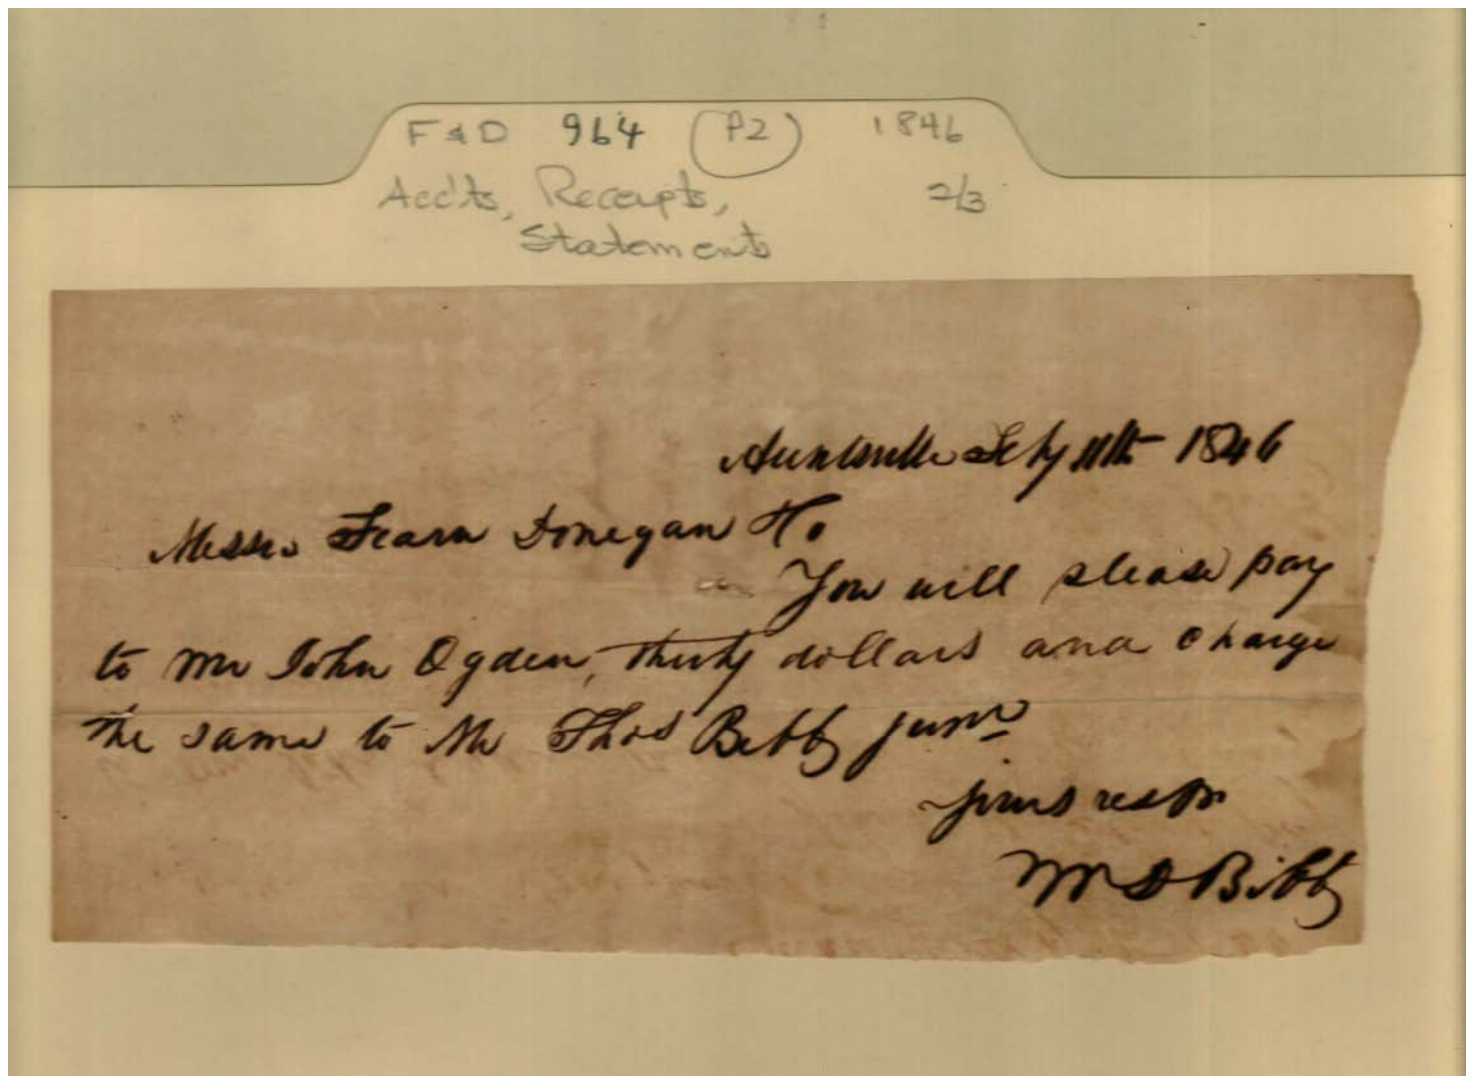 F & D 964 (P2) 1846
Acc'ts, Receipts, 2/3
Statements
Huntsville Feby 11th 1846
Messrs Fearn Donegan & Co
You will please pay
to Mr John Ogden, thirty dollars and charge
the same to Mr Thos Bibby junr
yours
Wm D Bibby